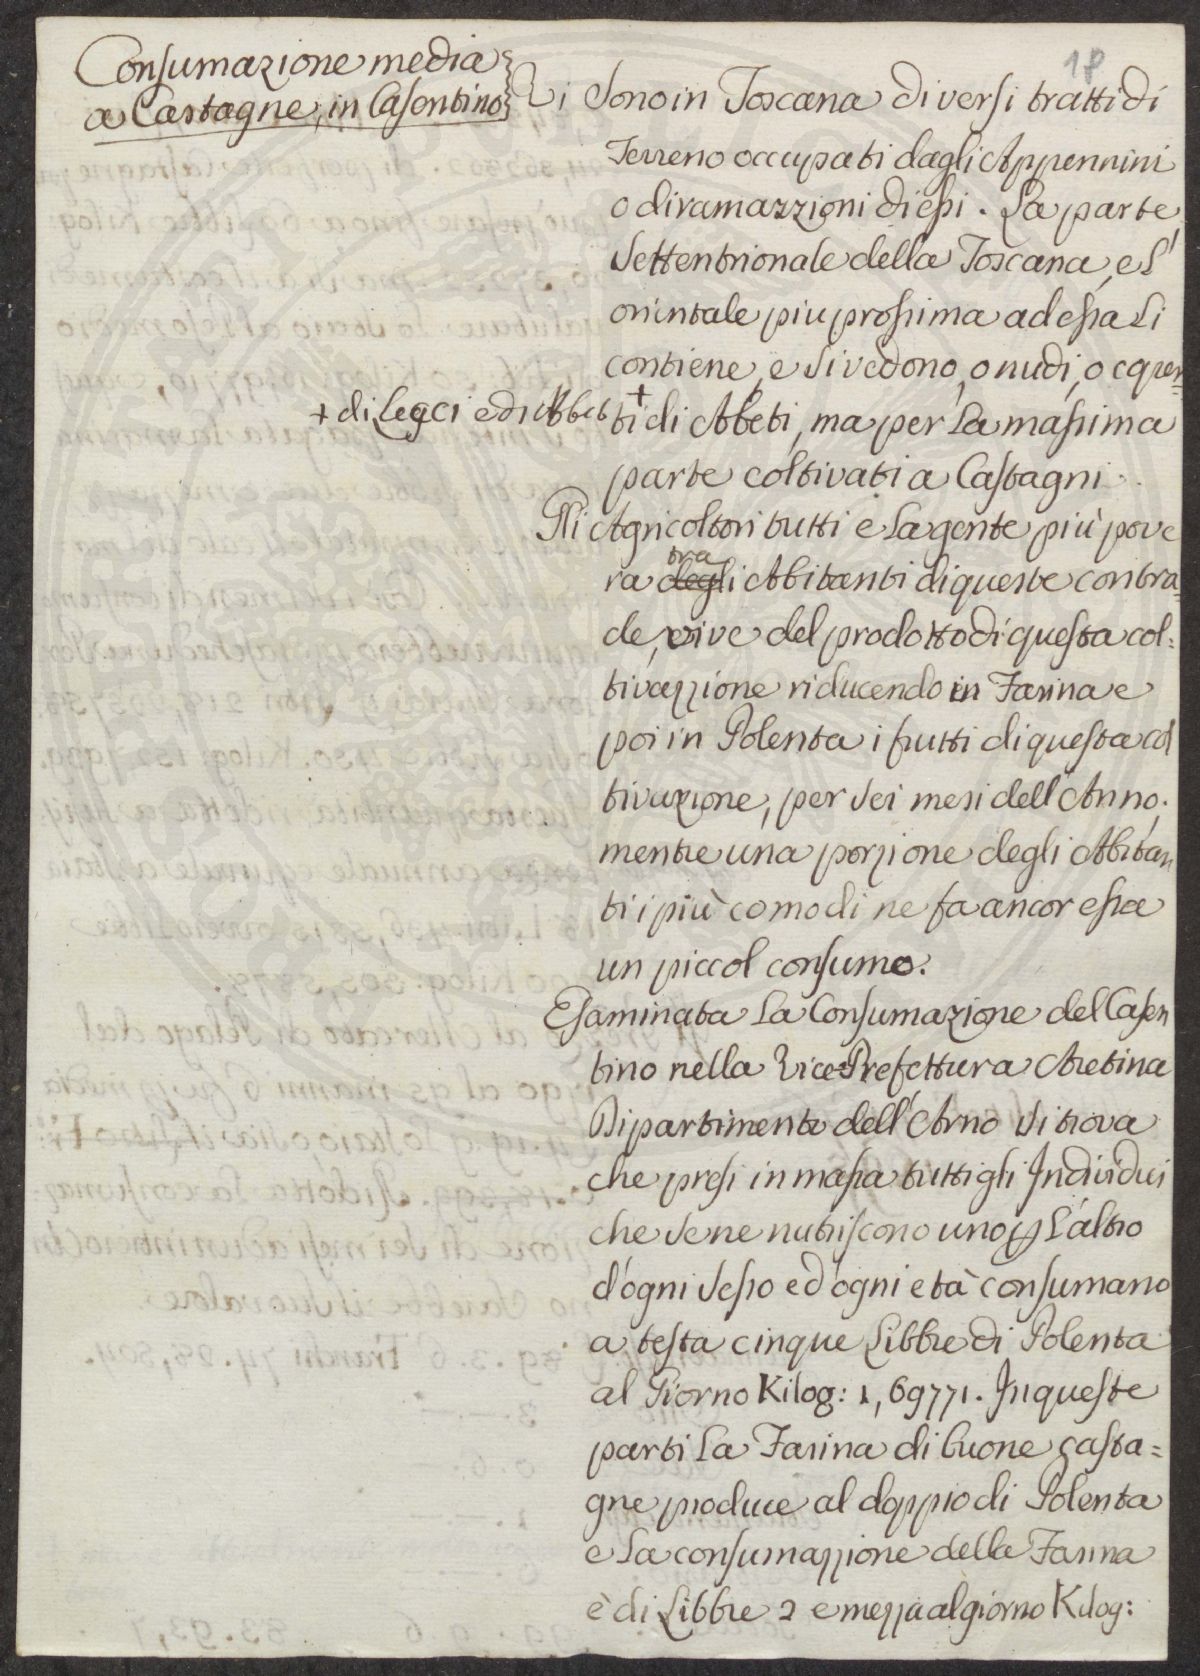 18
Consumazione media
a Castagne, in Casentino
Vi sono in Toscana diversi tratti di
Terreno occupati dagli Appennini
o diramazzioni di essi. La parte
Settentrionale della Toscana, e l'
orientale piu prossima ad essa li
contiene, e si vedono, o nudi, o coper=
+ di Lecci e di Abeti
ti + di Abeti, ma per la massima
parte coltivati a Castagni.
Gli Agricoltori tutti e la gente più pove
ra degli tra Abitanti di queste contra=
de, vive del prodotto di questa col=
tivazzione riducendo in Farina e
poi in Polenta i frutti di questa col
tivazione, per sei mesi dell'Anno.
mentre una porzione degli Abitan
ti i più comodi ne fa ancor essa
un piccol consumo.
Esaminata la Consumazione del Casen
tino nella Vice=Prefettura Aretina
Dipartimento dell'Arno si trova
che presi in massa tutti gli Individui
che se ne nutriscono uno p l'altro
d'ogni sesso ed ogni età consumano
a testa cinque Libbre di Polenta
al Giorno Kilog: 1,69771. In queste
parti la Farina di buone casta=
gne produce al doppio di Polenta
e la consumazzione della Farina
è di Libbre 2 e mezza al giorno Kilog: